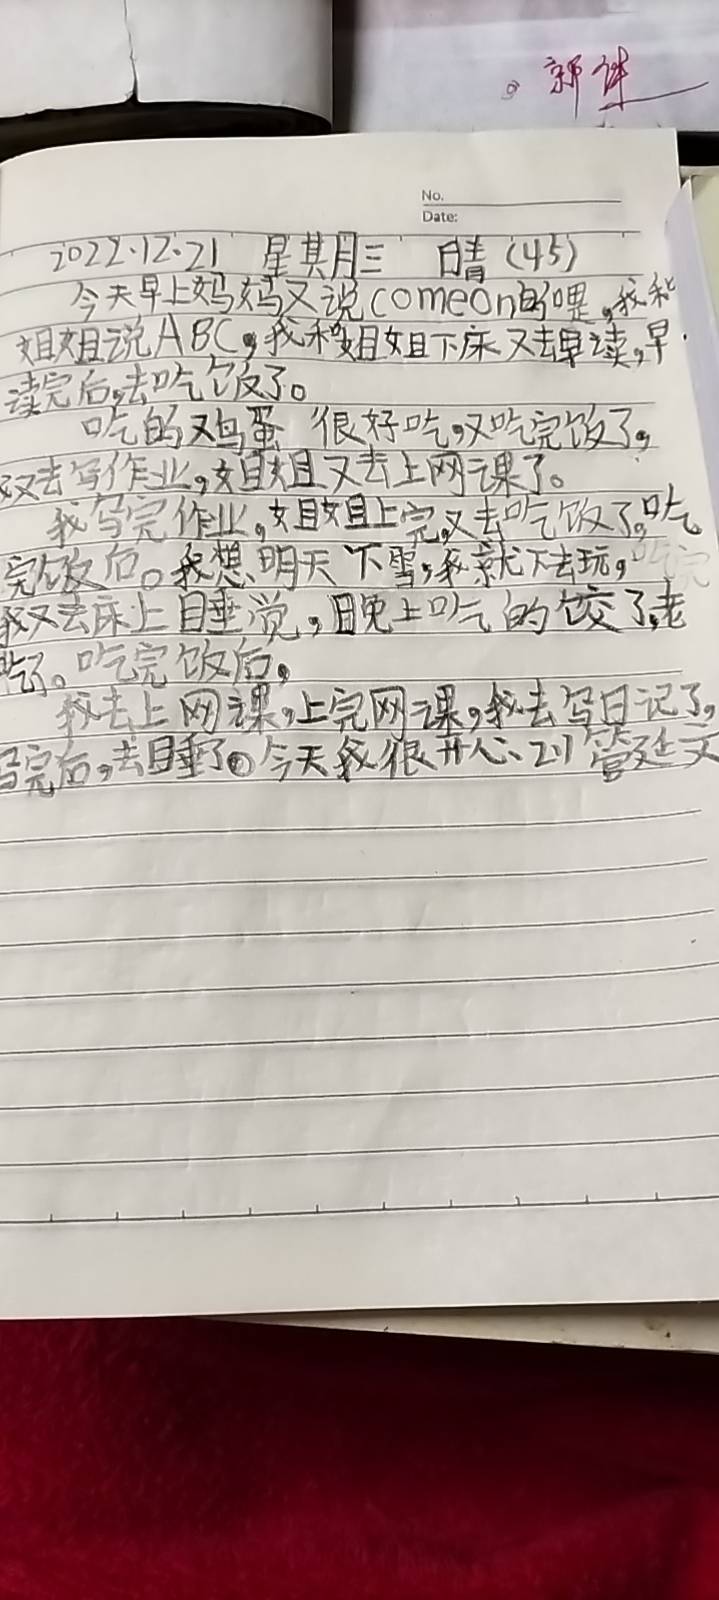 新健
No.
Date:
2022.12.21 星其月三 晴(45)
今天早上妈妈又说comeon的哩,我和
姐姐说ABC,我和姐姐下床又去早读,早
读完后,去吃饭了。
吃的鸡蛋 很好吃,又吃完饭了,
我又去写作业,姐姐又去上网课了。
我写完作业,姐姐上完又去吃饭了,吃
完饭后。我想明天下雪,我就下去玩,吃完
我又去床上睡觉,晚上吃的饺了,老
吃了。吃完饭后,
我去上网课,上完网课,我去写日记了,
写完后,去睡了。今天我很开心、211管廷文